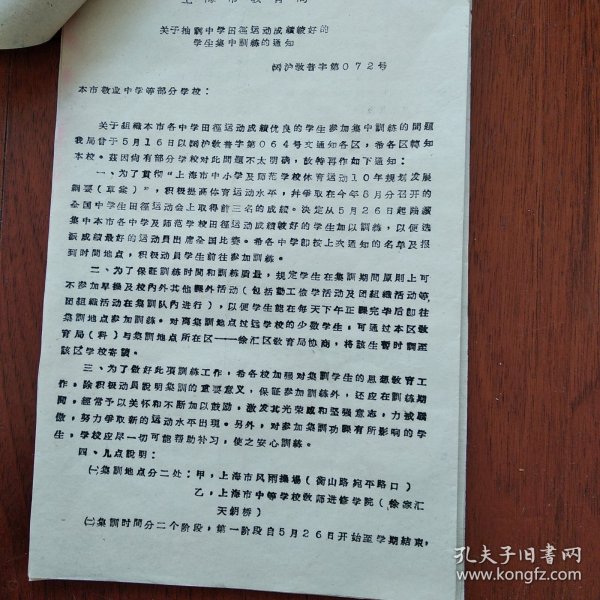 上海市教育局
关于抽調中学田徑运动成績較好的
学生集中訓練的通知
沪教普字第072号
本市敬业中学等部分学校：
关于組織本市各中学田徑运动成績优良的学生参加集中訓練的問題
我局曾于5月16日以 沪教普字第064号文通知各区，希各区轉知
本校。茲因尚有部分学校对此問題不太明确，故特再作如下通知：
一、为了貫彻“上海市中小学及师范学校体育运动10年规划发展
綱要（草案）”，积极提高体育运动水平，并爭取在今年8月分召开的
全国中学生田徑运动会上取得前三名的成績。决定从5月26日起陆續
集中本市各中学及师范学校田徑运动成績較好的学生加以訓練，以便选
派成績最好的运动員出席全国比賽。希各中学即按上次通知的名单及报
到时間地点，积极动員学生前往参加訓練。
二、为了保証訓練时間和訓練质量，規定学生在集訓期間原則上可
不参加早操及校內外其他課外活动（包括勤工儉学活动及团組織活动等，
团組織活动在集訓队內进行），以便学生能在每天下午正課完毕后即往
集訓地点参加訓練。对离集訓地点过远学校的少数学生，可通过本区教
育局（科）与集訓地点所在区——徐汇区教育局协商，将該生暫时調至
該区学校寄讀。
三、为了做好此項訓練工作，希各校加强对集訓学生的思想教育工
作。除积极动員說明集訓的重要意义，保証参加訓練外，还应在訓練期
間，經常予以关怀和不断加以鼓励，激发其光荣感和坚强意志，力戒驕
傲，努力爭取新的运动水平出现。另外，对参加集訓功課有所影响的学
生，学校应尽一切可能帮助补习，使之安心訓練。
四、几点說明：
㈠集訓地点分二处：甲，上海市风雨操場（衡山路宛平路口）
乙，上海市中等学校教师进修学院（徐家汇
天鈅桥）
㈡集訓时間分二个阶段，第一阶段自5月26日开始至学期結束，
孔夫子旧书网
www.kongfz.com